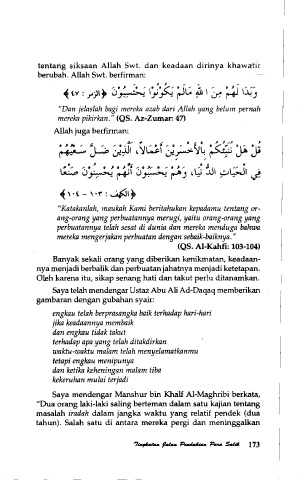 tentang siksaan Allah Swt. dan keadaan dirinya khawatir
berubah. Allah Swt. berfirman:
وَبَدَا لَهُمْ مِنَ اللهِ مَالَمْ يَكُوْنُوْا يَحْتَسِبُوْنَ ﴿الزمر : ٤٧﴾
"Dan jelaslah bagi mereka azab dari Allah yang belum pernah
mereka pikirkan." (QS. Az-Zumar: 47)
Allah juga berfirman:
قُلْ هَلْ نُنَبِّئُكُمْ بِالْأَخْسَرِيْنَ أَعْمَالاً، اَلَّذِيْنَ ضَلَّ سَعْيُهُمْ
فِي الْحَيَاتِ الدُّنْيَا، وَهُمْ يَحْسَبُوْنَ أَنَّهُمْ يُحْسِنُوْنَ صُنْعًا
﴿الكهف : ١٠٣ – ١٠٤﴾
"Katakanlah, maukah Kami beritahukan kepadamu tentang or-
ang-orang yang perbuatannya merugi, yaitu orang-orang yang
perbuatannya telah sesat di dunia dan mereka menduga bahwa
mereka mengerjakan perbuatan dengan sebaik-baiknya."
(QS. Al-Kahfi: 103-104)
Banyak sekali orang yang diberikan kenikmatan, keadaan-
nya menjadi berbalik dan perbuatan jahatnya menjadi ketetapan.
Oleh karena itu, sikap senang hati dan takut perlu ditanamkan.
Saya telah mendengar Ustaz Abu Ali Ad-Daqaq memberikan
gambaran dengan gubahan syair:
engkau telah berprasangka baik terhadap hari-hari
jika keadaannya membaik
dan engkau tidak takut
terhadap apa yang telah ditakdirkan
waktu-waktu malam telah menyelamatkanmu
tetapi engkau menipunya
dan ketika keheningan malam tiba
kekeruhan mulai terjadi
Saya mendengar Manshur bin Khalf Al-Maghribi berkata,
"Dua orang laki-laki saling berteman dalam satu kajian tentang
masalah iradah dalam jangka waktu yang relatif pendek (dua
tahun). Salah satu di antara mereka pergi dan meninggalkan
Tingkatan Jalan Pendakian Para Salik 173